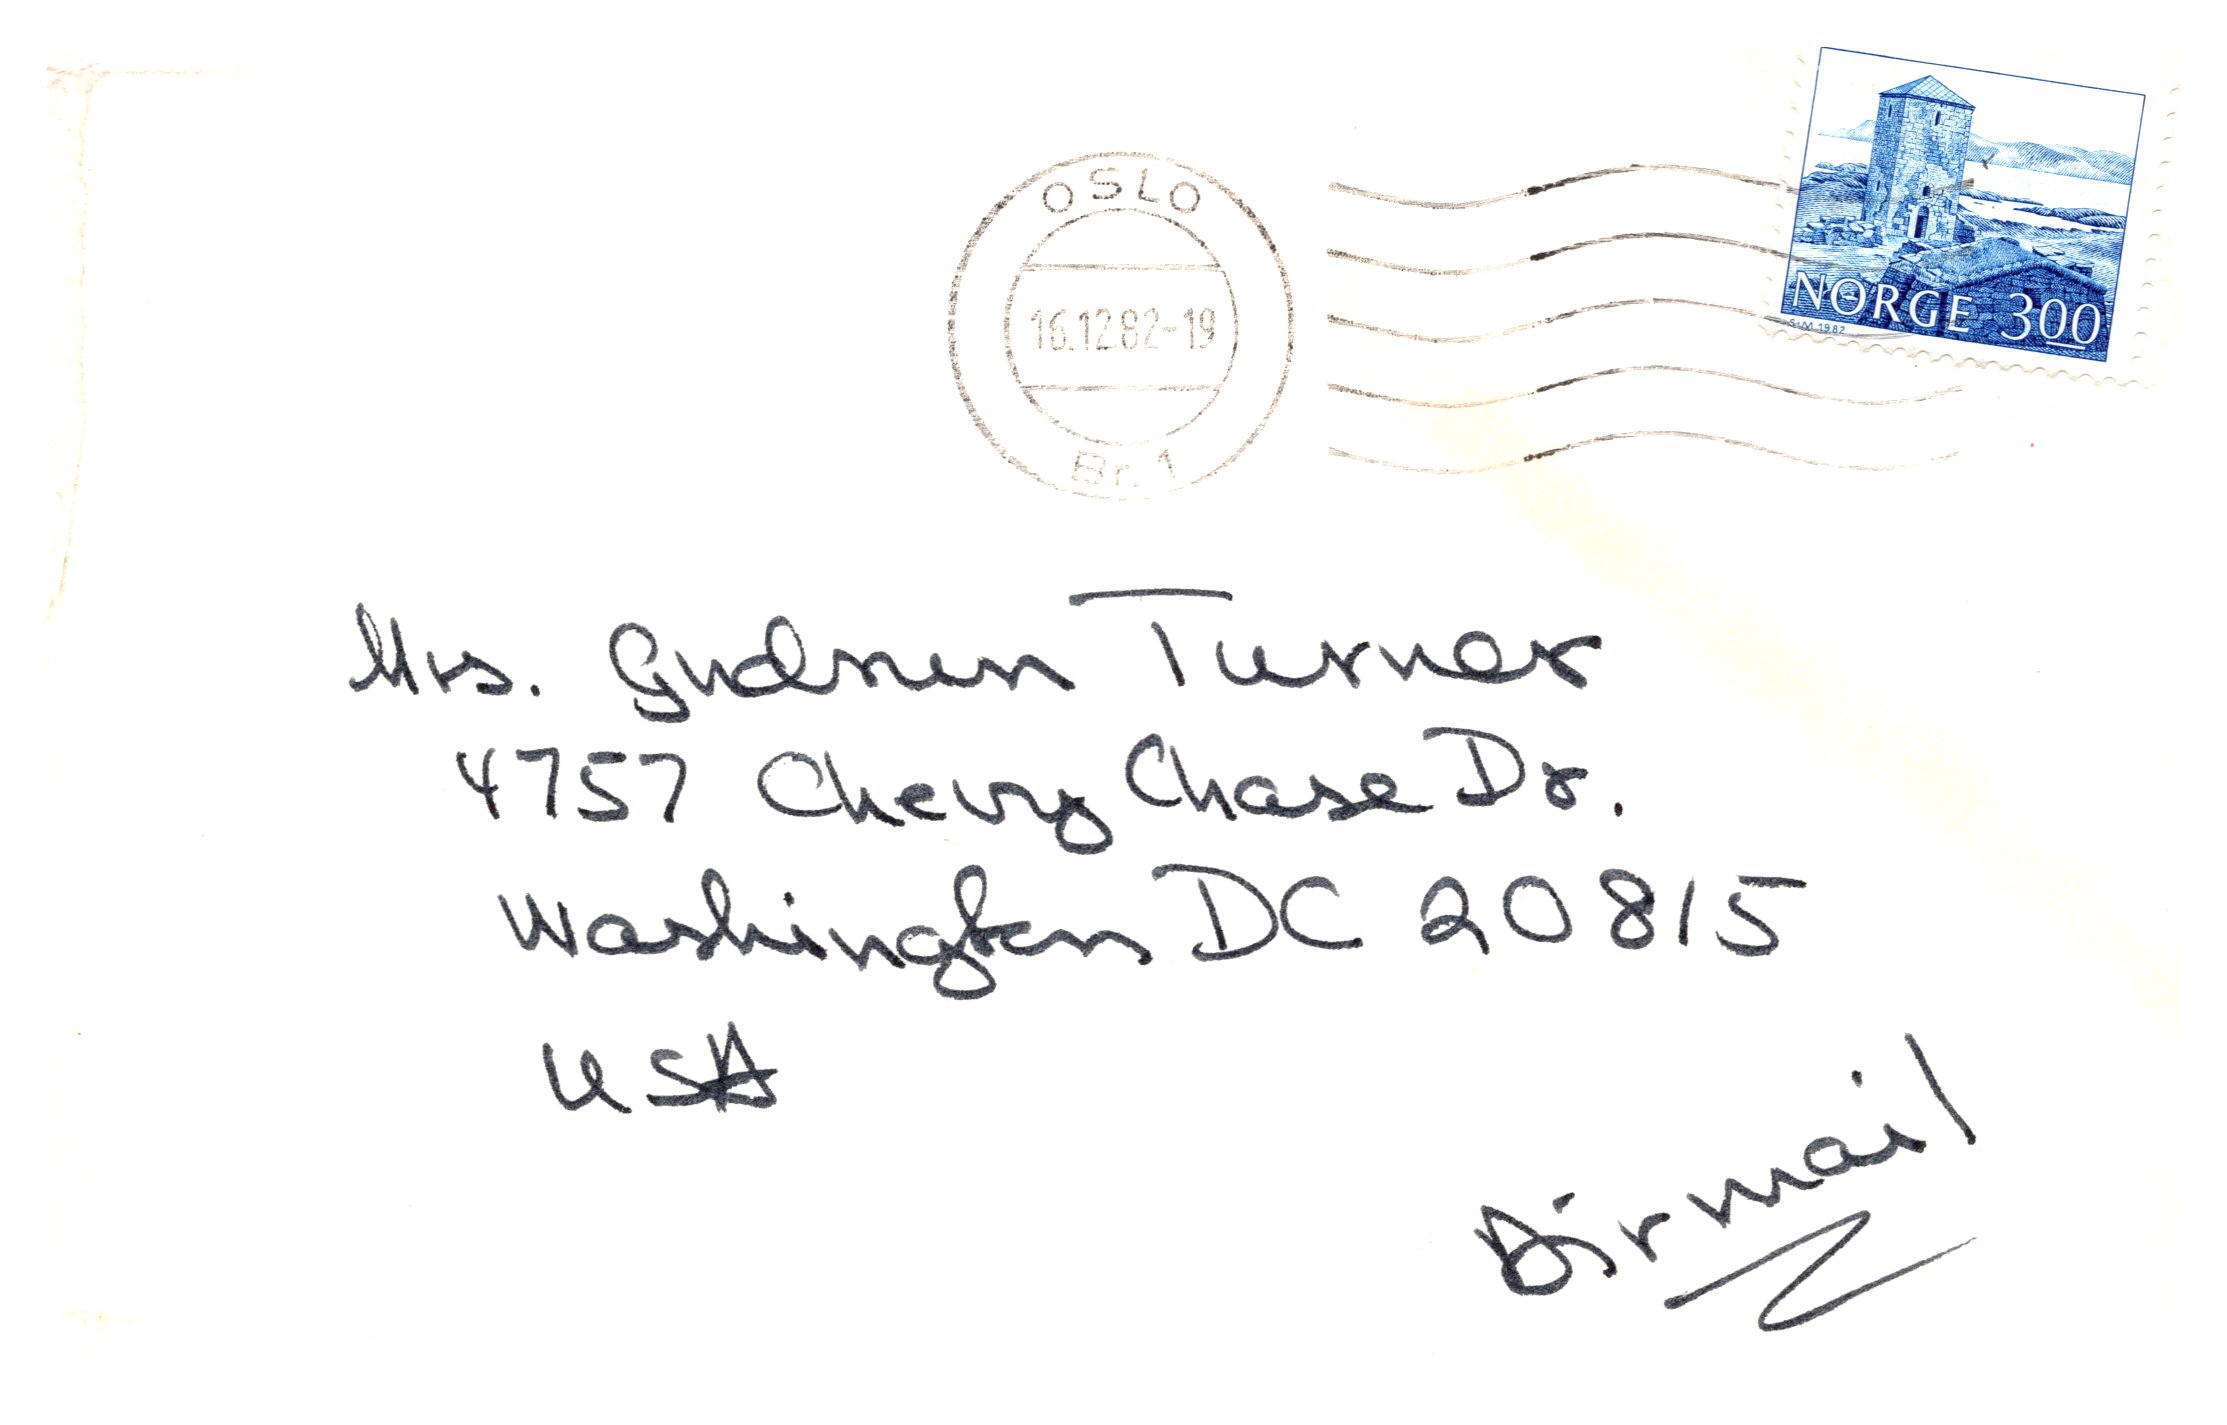 OSLO
16.12.82-19
Br. 1
NORGE 300
S·M 1982
Mrs. Gudrun Turner
4757 Chevy Chase Dr.
Washington DC 20815
USA
Airmail